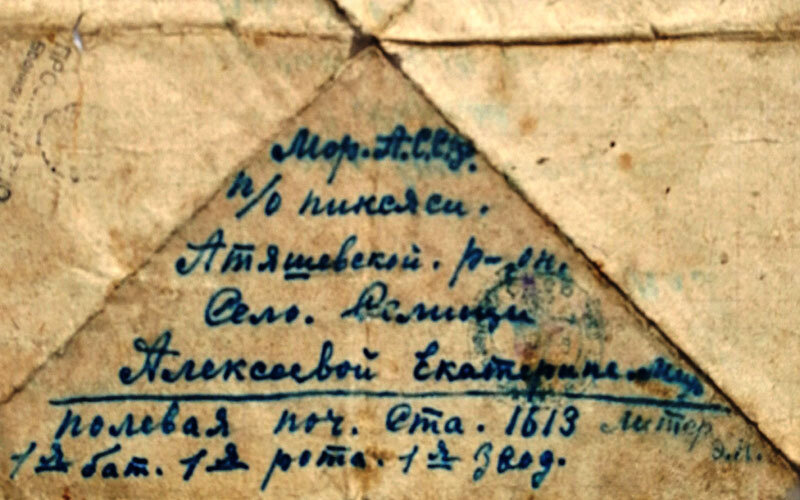 Мор. А.С.С.Р.
п/о пиксяси.
Атяшевской. р-он
Село. Селищи
Алексеевой Екатерине
полевая поч. Ста. 1613 литер
1й бат. 1й рота. 1й Звод.